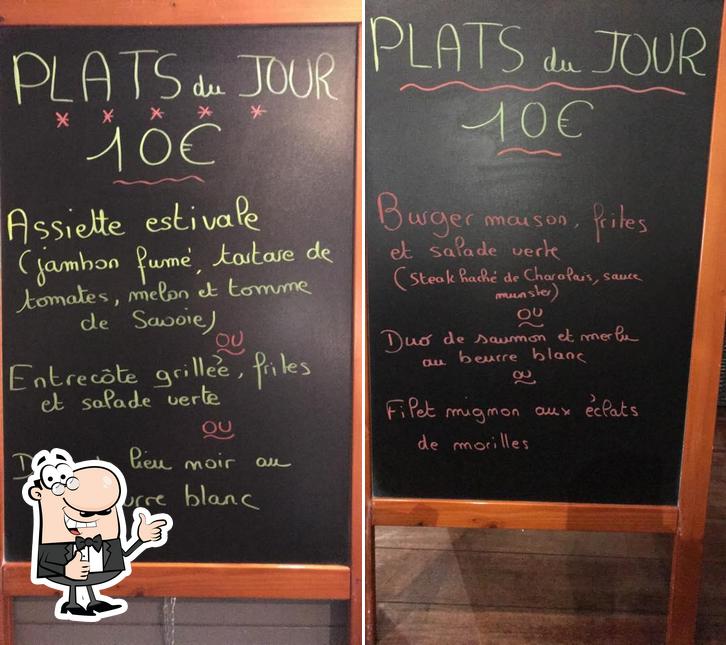 PLATS du JOUR
10€
Assiette estivale
(jambon fumé, tartare de
tomates, melon et tomme
de Savoie)
ou
Entrecôte grillée, frites
et salade verte
ou
lieu noir au
blanc
PLATS du JOUR
10€
Burger maison, frites
et salade verte
(Steak haché de Charolais, sauce
munster)
ou
Duo de saumon et merlu
au beurre blanc
ou
Filet mignon aux éclats
de morilles